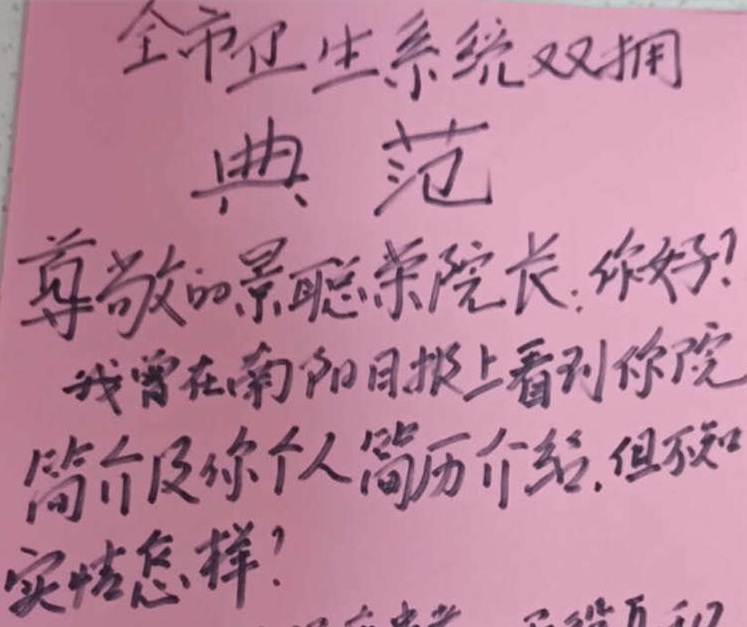 全市卫生系统双拥
典范
尊敬的景聪荣院长:你好?
我曾在南阳日报上看到你院
简介及你个人简历介绍,但不知
实情怎样?